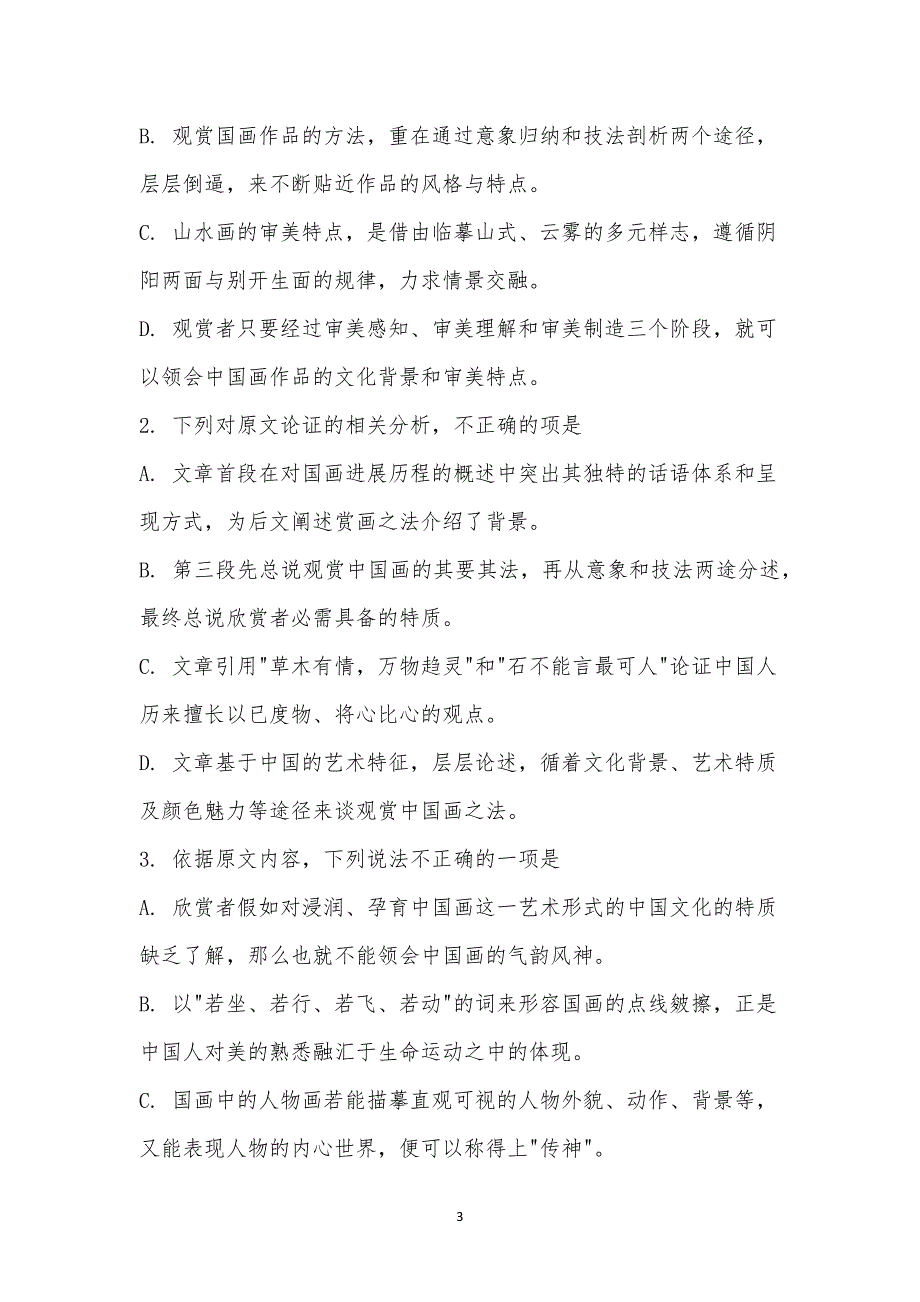 B. 观赏国画作品的方法，重在通过意象归纳和技法剖析两个途径，
层层倒逼，来不断贴近作品的风格与特点。
C. 山水画的审美特点，是借由临摹山式、云雾的多元样志，遵循阴
阳两面与别开生面的规律，力求情景交融。
D. 观赏者只要经过审美感知、审美理解和审美制造三个阶段，就可
以领会中国画作品的文化背景和审美特点。
2. 下列对原文论证的相关分析，不正确的项是
A. 文章首段在对国画进展历程的概述中突出其独特的话语体系和呈
现方式，为后文阐述赏画之法介绍了背景。
B. 第三段先总说观赏中国画的其要其法，再从意象和技法两途分述，
最终总说欣赏者必需具备的特质。
C. 文章引用"草木有情，万物趋灵"和"石不能言最可人"论证中国人
历来擅长以已度物、将心比心的观点。
D. 文章基于中国的艺术特征，层层论述，循着文化背景、艺术特质
及颜色魅力等途径来谈观赏中国画之法。
3. 依据原文内容，下列说法不正确的一项是
A. 欣赏者假如对浸润、孕育中国画这一艺术形式的中国文化的特质
缺乏了解，那么也就不能领会中国画的气韵风神。
B. 以"若坐、若行、若飞、若动"的词来形容国画的点线皴擦，正是
中国人对美的熟悉融汇于生命运动之中的体现。
C. 国画中的人物画若能描摹直观可视的人物外貌、动作、背景等，
又能表现人物的内心世界，便可以称得上"传神"。
3